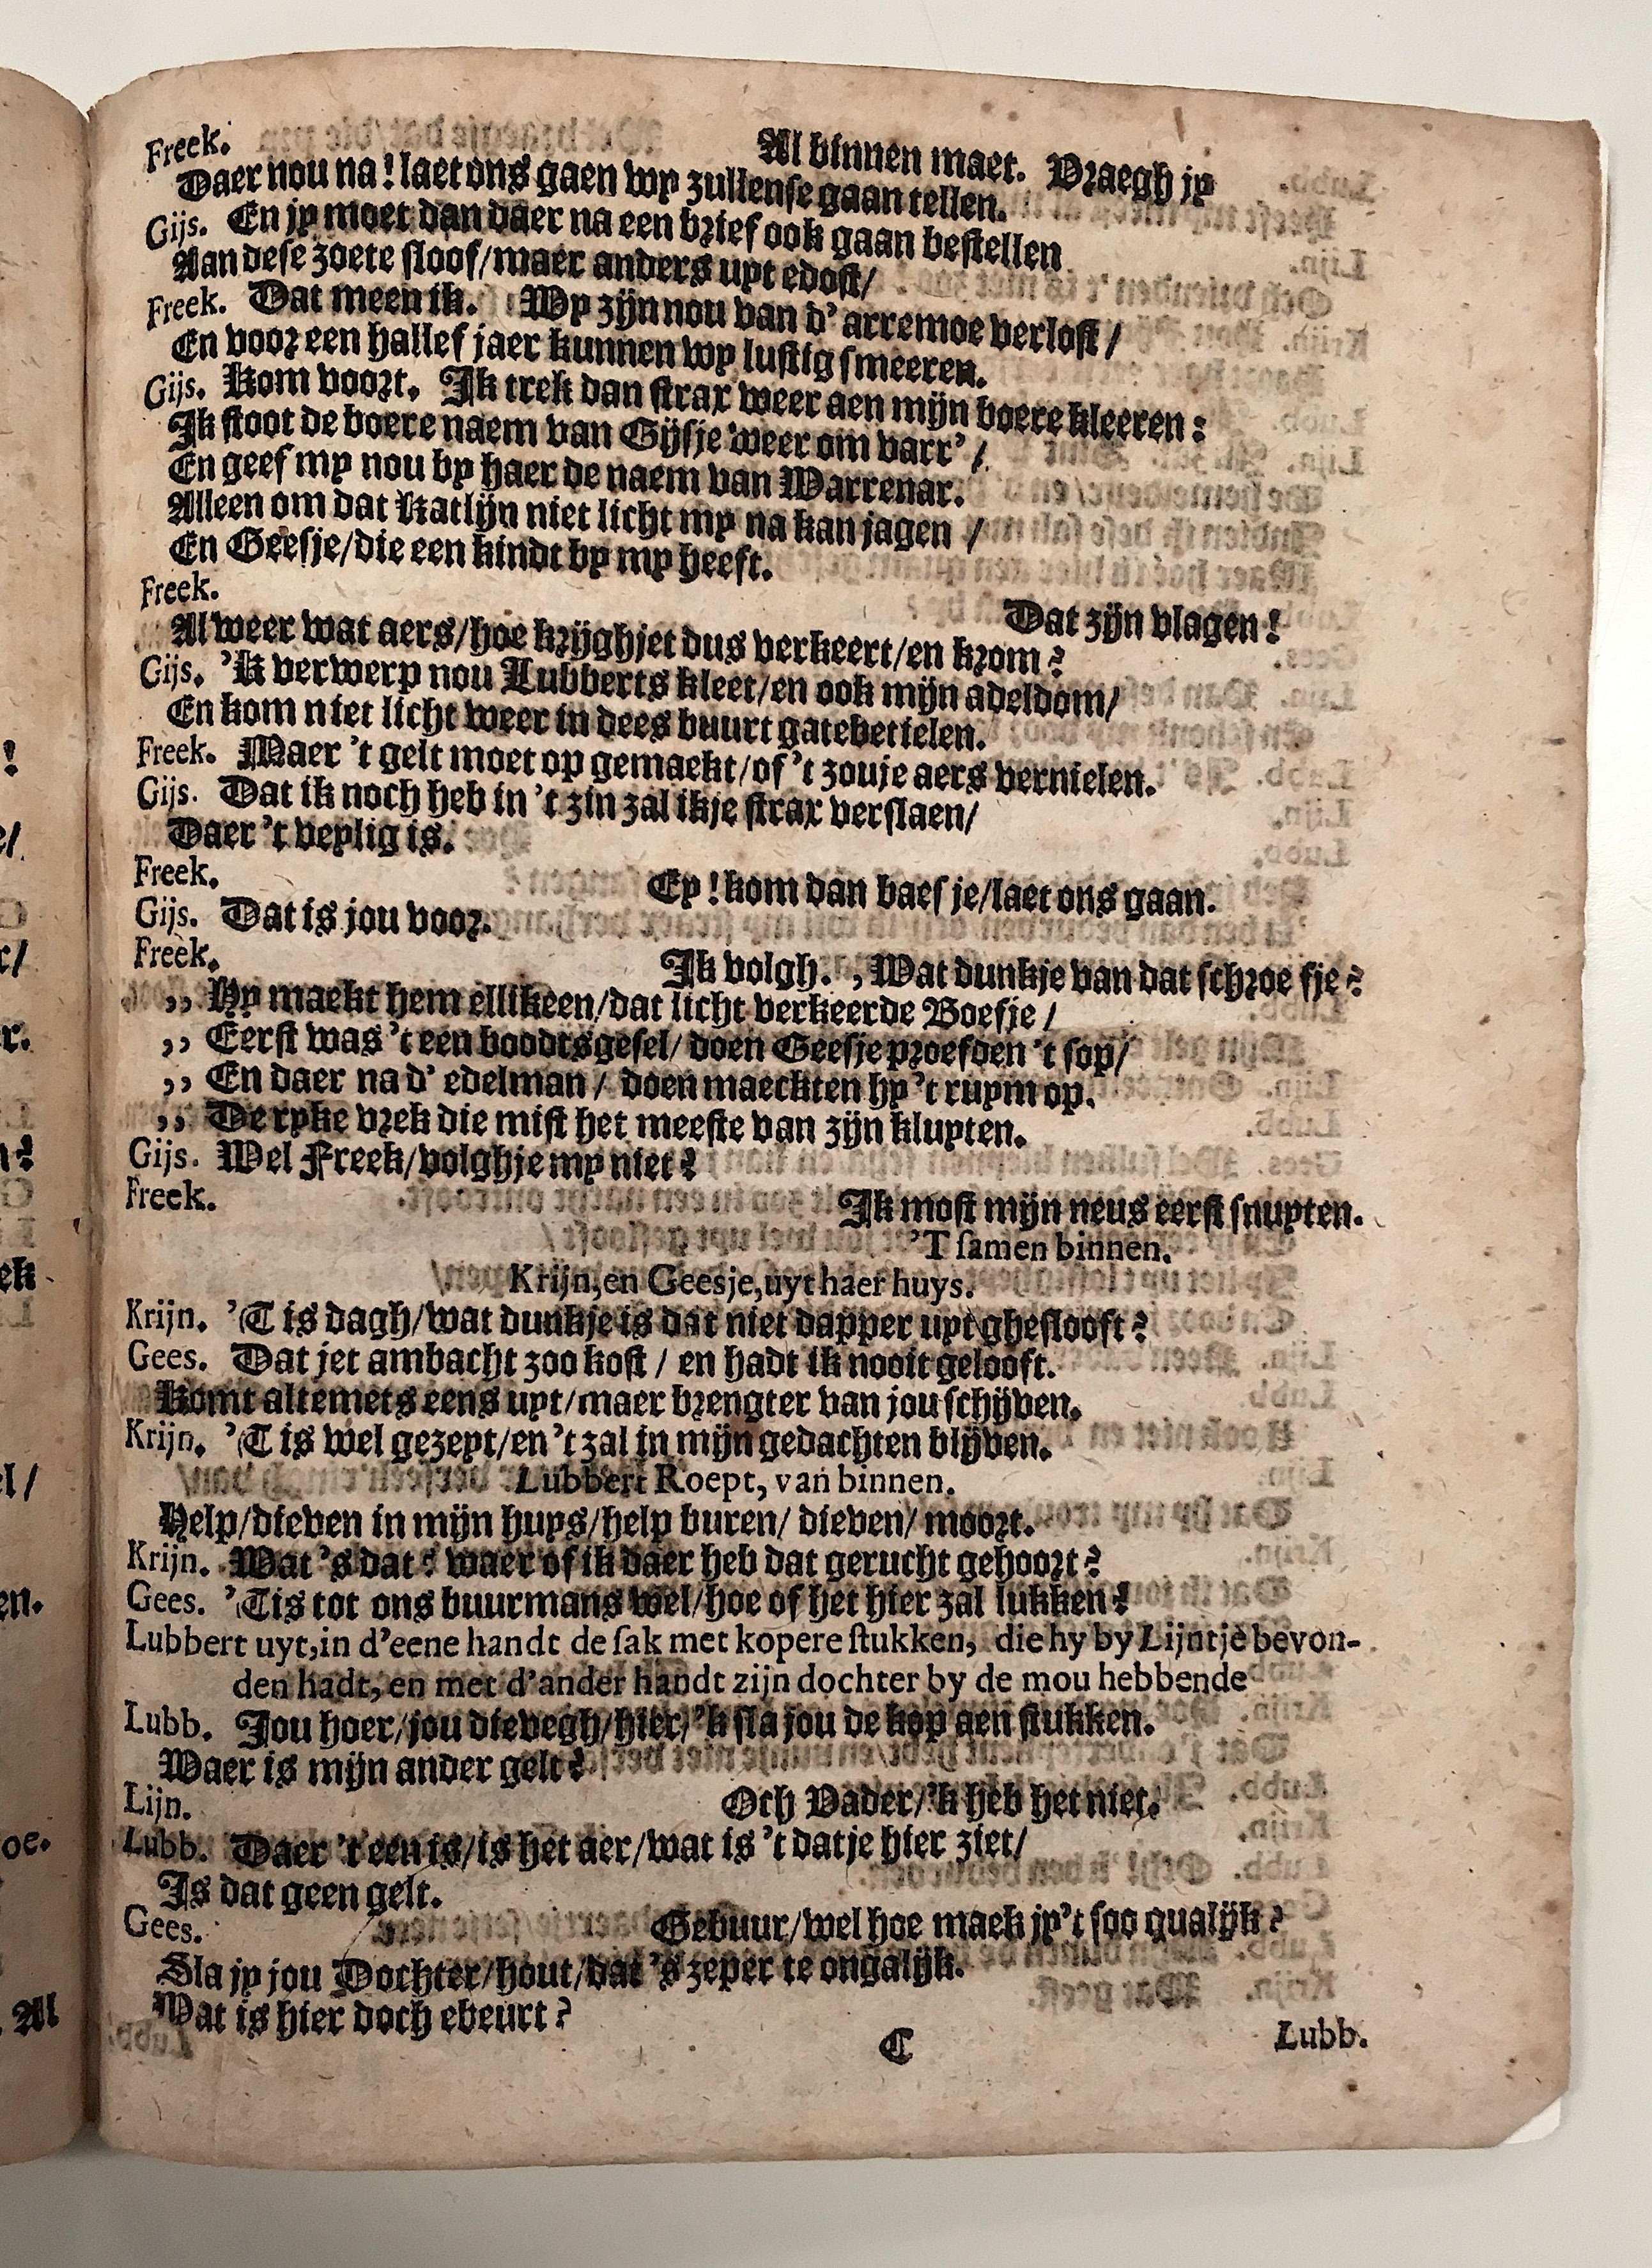 Freek. Al binnen maet. Vraegh jy
Daer nou na! laet ons gaen wy zullense gaan tellen.
Gijs. En jy moet dan daer na een brief ook gaan bestellen
Aan dese zoete sloof/maer anders uyt edost/
Freek. Dat meen ik. Wy zijn nou van d' arremoe verlost/
En voor een hallef jaer kunnen wy lustig smeeren.
Gijs. Kom voort. Ik trek dan strax weer aen mijn boere kleeren:
Ik stoot de boere naem van Gijsje weer om varr'/
En geef my nou by haer de naem van Warrenar.
Alleen om dat Katlijn niet licht my na kan jagen/
En Geesje/die een kindt by my heeft.
Freek. Dat zijn vlagen!
Al weer wat aers/hoe krijghjet dus verkeert/en krom?
Gijs. 'K verwerp nou Lubberts kleet/en ook mijn adeldom/
En kom niet licht weer in dees buurt gatebetielen.
Freek. Maer 't gelt moet op gemaekt/of 't zouje aers vernielen.
Gijs. Dat ik noch heb in 't zin zal ikje strax verslaen/
Daer 't veylig is.
Freek. Ey! kom dan baesje/laet ons gaan.
Gijs. Dat is jou voor.
Freek. Ik volgh. ,Wat dunkje van dat schroefje?
,, Hy maekt hem ellikeen/dat licht verkeerde Boefje/
,, Eerst was 't een boodtsgesel/doen Geesje proefden 't sop/
,, En daer na d' edelman/ doen maeckten hy 't ruym op.
,, De ryke vrek die mist het meeste van zijn kluyten.
Gijs. Wel Freek/volghje my niet?
Freek. Ik most mijn neus eerst snuyten.
'T samen binnen.
Krijn, en Geesje, uyt haer huys.
Krijn. 'T is dagh/wat dunkje is dat niet dapper uyt ghesslooft?
Gees. Dat jet ambacht zoo kost/ en hadt ik nooit gelooft.
Komt altemets eens uyt/maer brengter van jou schijven.
Krijn. 'T is wel gezeyt/en 't zal in mijn gedachten blijven.
Lubbert Roept, van binnen.
Help/dieven in mijn huys/help buren/ dieven/ moort.
Krijn. Wat 's dat? waer of ik daer heb dat gerucht gehoort?
Gees. 'T is tot ons buurmans wel/hoe of het hier zal lukken!
Lubbert uyt, in d'eene handt de sak met kopere stukken, die hy by Lijntje bevon-
den hadt, en met d'ander handt zijn dochter by de mou hebbende
Lubb. Jou hoer/jou dievegh/hier/'k sla jou de kop aen stukken.
Waer is mijn ander gelt?
Lijn. Och Vader/'k heb het niet.
Lubb. Daer 't een is/is het aer/wat is 't datje hier ziet/
Is dat geen gelt.
Gees. Gebuur/wel hoe maek jy't soo qualijk?
Sla jy jou Dochter/hout/dat 's zeper te ongalijk.
Wat is hier doch ebeurt?
C Lubb.